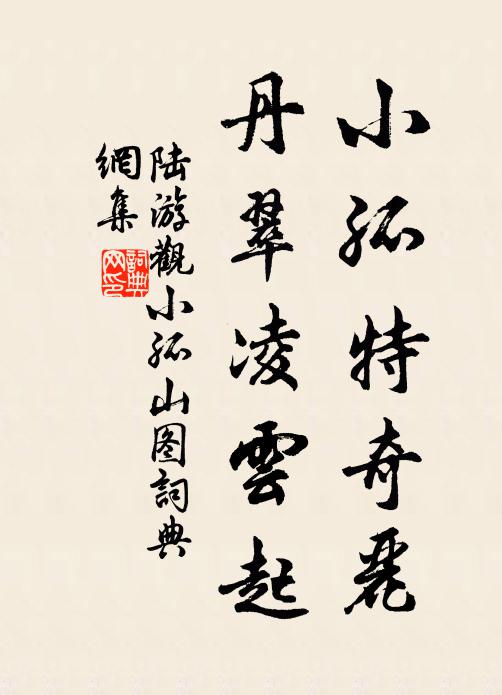 小孤特奇麗
丹翠凌雲起
陆游觀小孤山图詞典
網集
詞典
网印